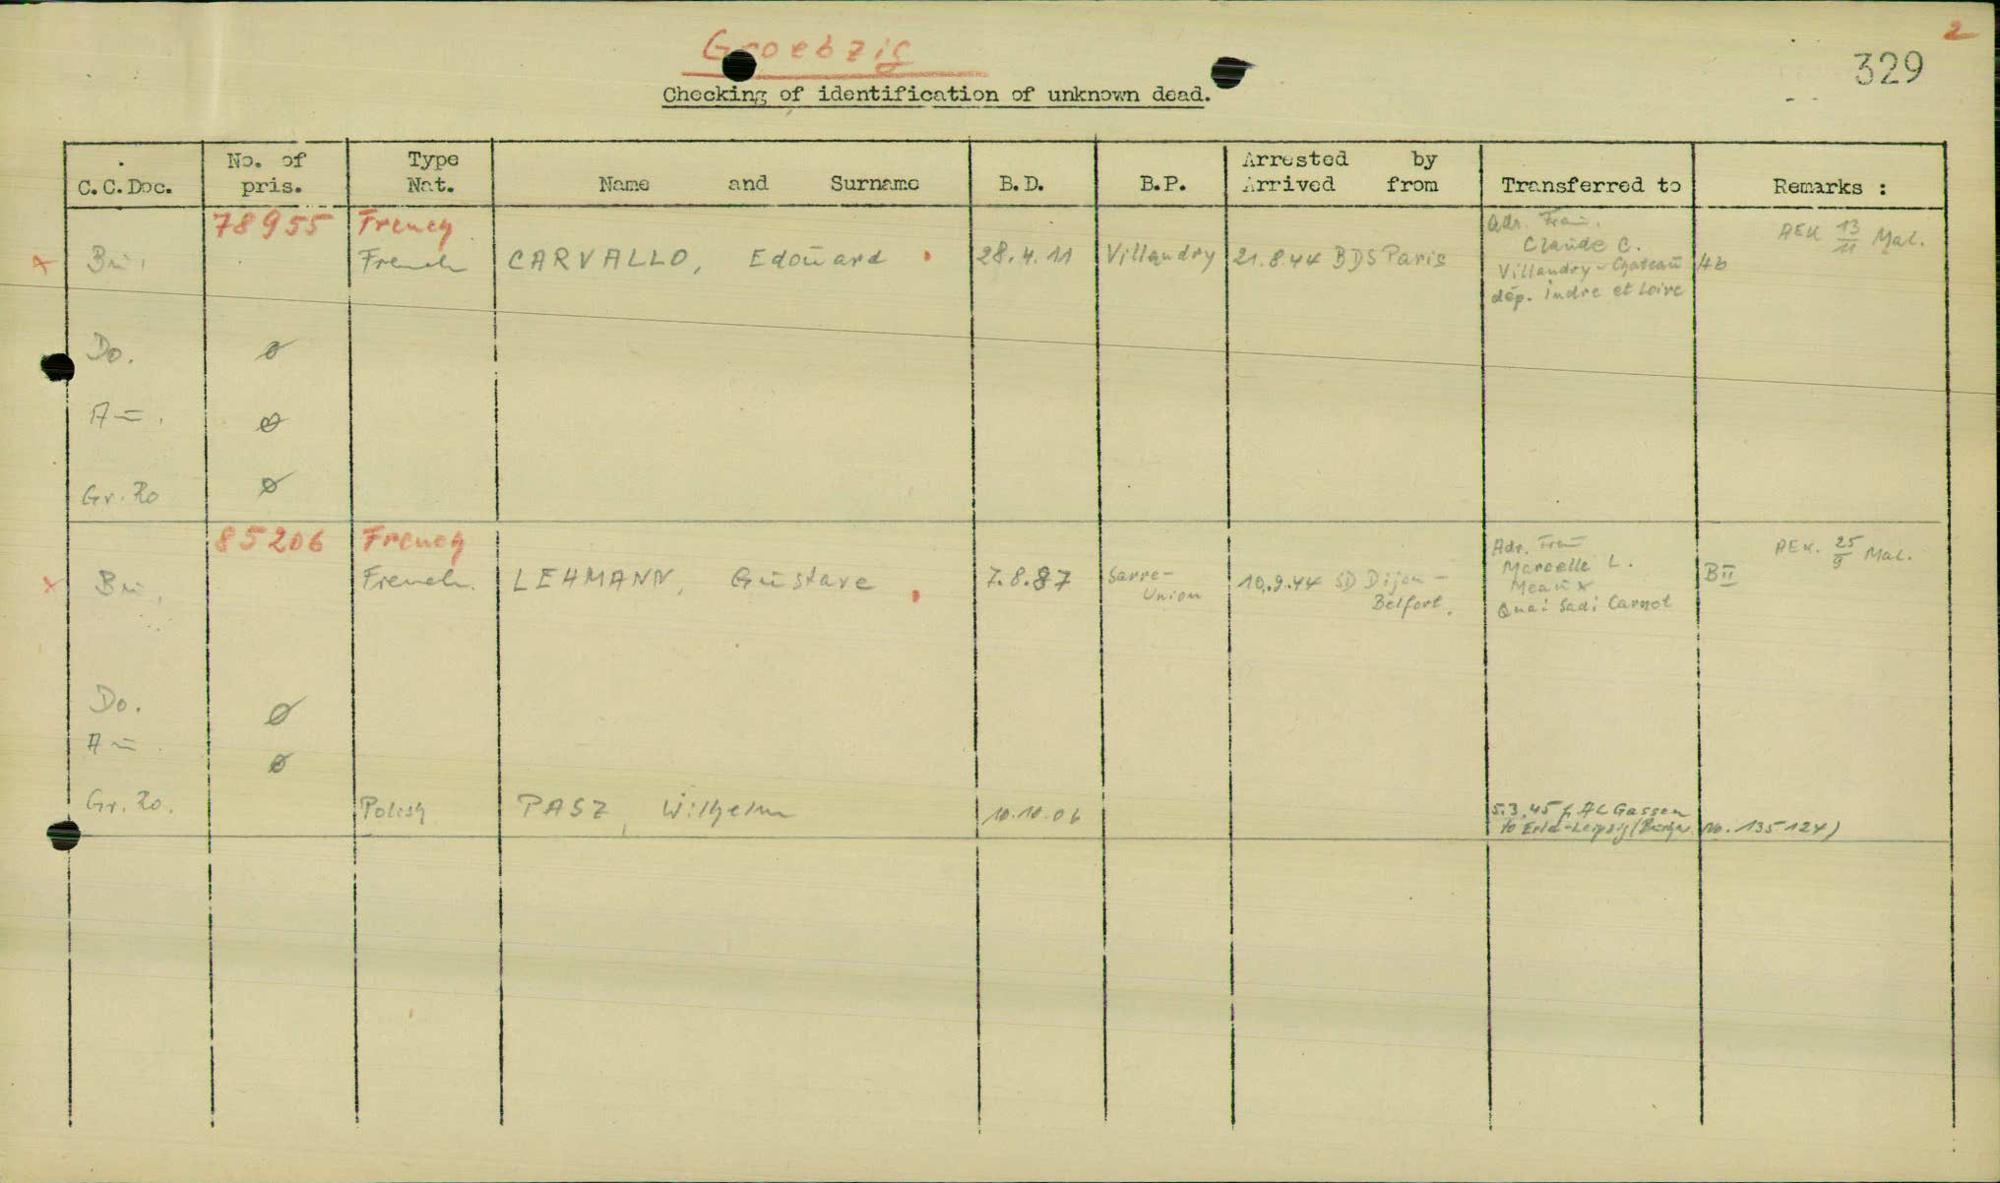 Groebzig
2
329
Checking of identification of unknown dead.
C.C.Doc. No. of pris. Type Nat. Name and Surname B.D. B.P. Arrested by Arrived from Transferred to Remarks :
78955 French
Bu. French CARVALLO, Edouard 28.4.11 Villandry 21.8.44 BDS Paris
Adr. Frau.
Claude C.
Villandry - Chateau
dép. Indre et Loire
AEK 13/11 Mal.
Do. ø
Au. ø
Gr. Ro ø
85206 French
Bu. French. LEHMANN, Gustave 7.8.87 Sarre-Union 10.9.44 SD Dijon - Belfort.
Adr. Frau
Marcelle L.
Meaux
Quai Sadi Carnot
BII
AEK. 25/9 Mal.
Do. ø
Au. ø
Gr. Ro. Polish PASZ, Wilhelm 10.10.06
5.3.45 f. AL Gassen
to Erla-Leipzig ( No. 135124)